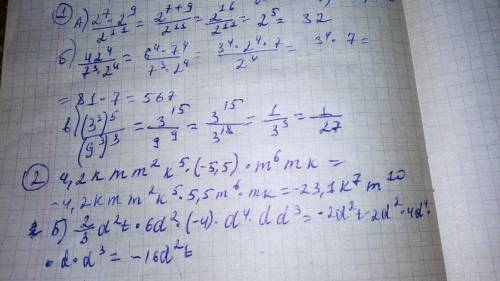 ① А) 2⁷·2⁹/2¹¹ = 2⁷⁺⁹/2¹¹ = 2¹⁶/2¹¹ = 2⁵ = 32
б) 42⁴/7³·2⁴ = 6⁴·7⁴/7³·2⁴ = 3⁴·2⁴·7/2⁴ = 3⁴·7 =
= 81·7 = 567
в) (3³)⁵/(9³)³ = 3¹⁵/9⁹ = 3¹⁵/3¹⁸ = 1/3³ = 1/27
② 4,2kmm²k⁵·(-5,5)·m⁶mk =
-4,2kmm²k⁵·5,5m⁶·mk = -23,1k⁷m¹⁰
Б) 2/3 d²t·6d²·(-4)·d⁴·d d³ = -2d²t·2d²·4d⁴·
·d·d³ = -16d²t